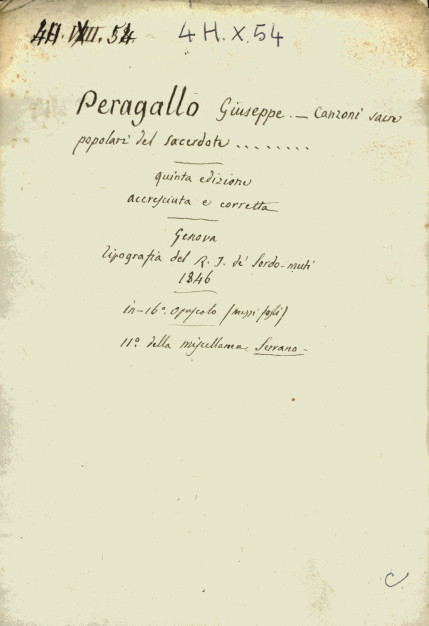 4H.VIII.54 4H.X.54
Peragallo Giuseppe. — Canzoni sacre
popolari del sacerdote ........
quinta edizione
accresciuta e corretta
Genova
tipografia del R. I. de' Sordo-muti
1846
in-16° opuscolo
11° della miscellanea Serrano -
C